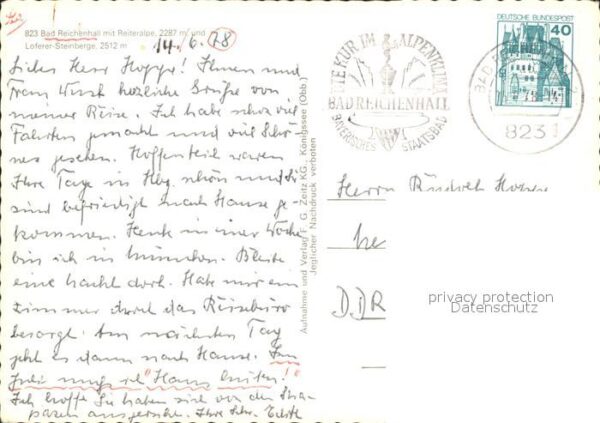 823 Bad Reichenhall mit Reiteralpe, 2287 m und
Loferer-Steinberge, 2512 m
14. 6. 78
Lieber Herr Hoppe! Ihnen und
Frau herzliche Grüße von
meiner Reise. Ich habe schon viel
Fahrten gemacht und viel Schö-
nes gesehen. Hoffentlich waren
Ihre Tage in Hbg. schön und Sie
sind befriedigt nach Hause ge-
kommen. Heute in einer Woche
bin ich in München. Bleibe
eine Nacht dort. Habe mir ein
Zimmer durch das Reisebüro
besorgt. Am nächsten Tag
geht es dann nach Hause. Im
Juli muß ich "Haus hüten!"
Ich hoffe Sie haben sich von den Stra-
pazen ausgeruht. Ihre Edith
Aufnahme und Verlag F. G. Zeitz KG., Königssee (Obb.)
Jeglicher Nachdruck verboten
KUR IM ALPENKLIMA
BAD REICHENHALL
BAYERISCHES STAATSBAD
DEUTSCHE BUNDESPOST
40
8231
Herrn
DDR
privacy protection
Datenschutz